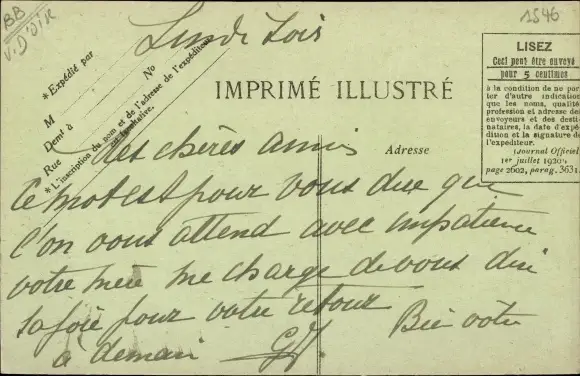 BB
V. D'OISE
1546
Lundi Soir
*Expédié par
M
No
Demt à
Rue
*L'inscription du nom et de l'adresse de l'expéditeur
est facultative.
IMPRIMÉ ILLUSTRÉ
Adresse
LISEZ
Ceci peut être envoyé
pour 5 centimes
à la condition de ne por-
ter d'autre indication
que les noms, qualité
profession et adresse des
envoyeurs et des desti-
nataires, la date d'expé-
dition et la signature de
l'expéditeur.
(Journal Officiel
1er juillet 1920,
page 2602, parag. 363).
Mes chères amis
Ce mot est pour vous dire que
l'on vous attend avec impatience
votre mère me charge de vous dire
sa joie pour votre retour
Bien votre
a demain